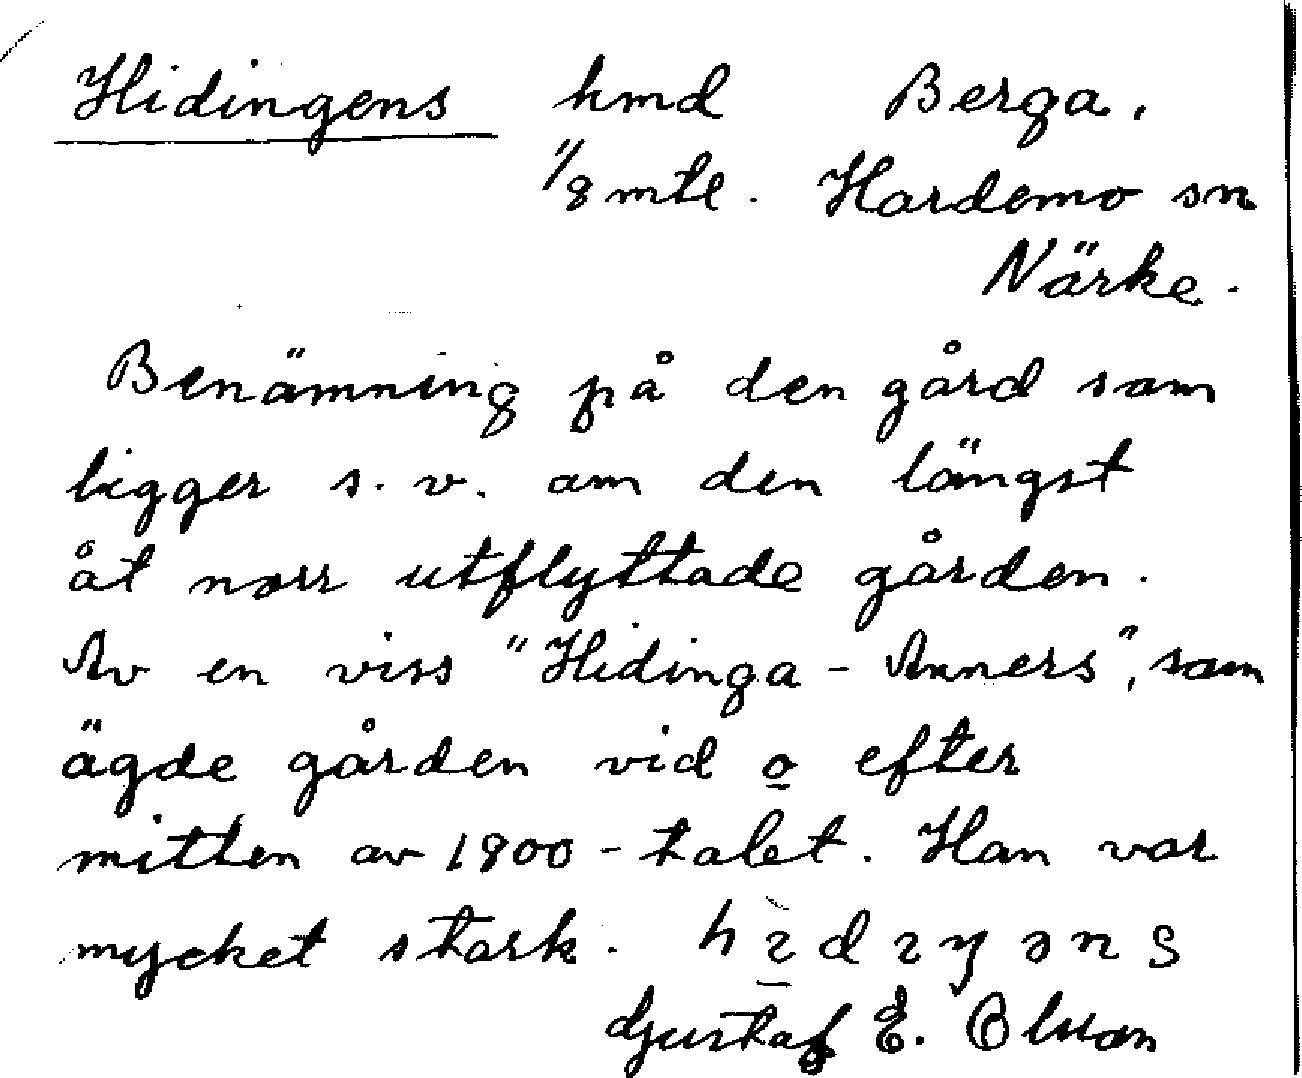 Hidingens hmd Berga.
1/8 mtl. Hardemo sn
Närke.
Benämning på den gård som
ligger s.v. om den längst
åt norr utflyttade gården.
Av en viss "Hidinga-Anners", som
ägde gården vid o efter
mitten av 1800-talet. Han var
mycket stark.
Gustaf E.